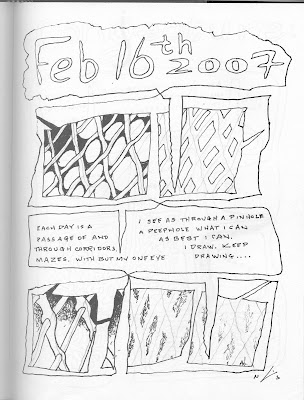 Feb 16th 2007
EACH DAY IS A
PASSAGE OF AND
THROUGH CORRIDORS,
MAZES, WITH BUT MY ONE EYE
I SEE AS THROUGH A PINHOLE
A PEEPHOLE WHAT I CAN
AS BEST I CAN.
I DRAW. KEEP
DRAWING....